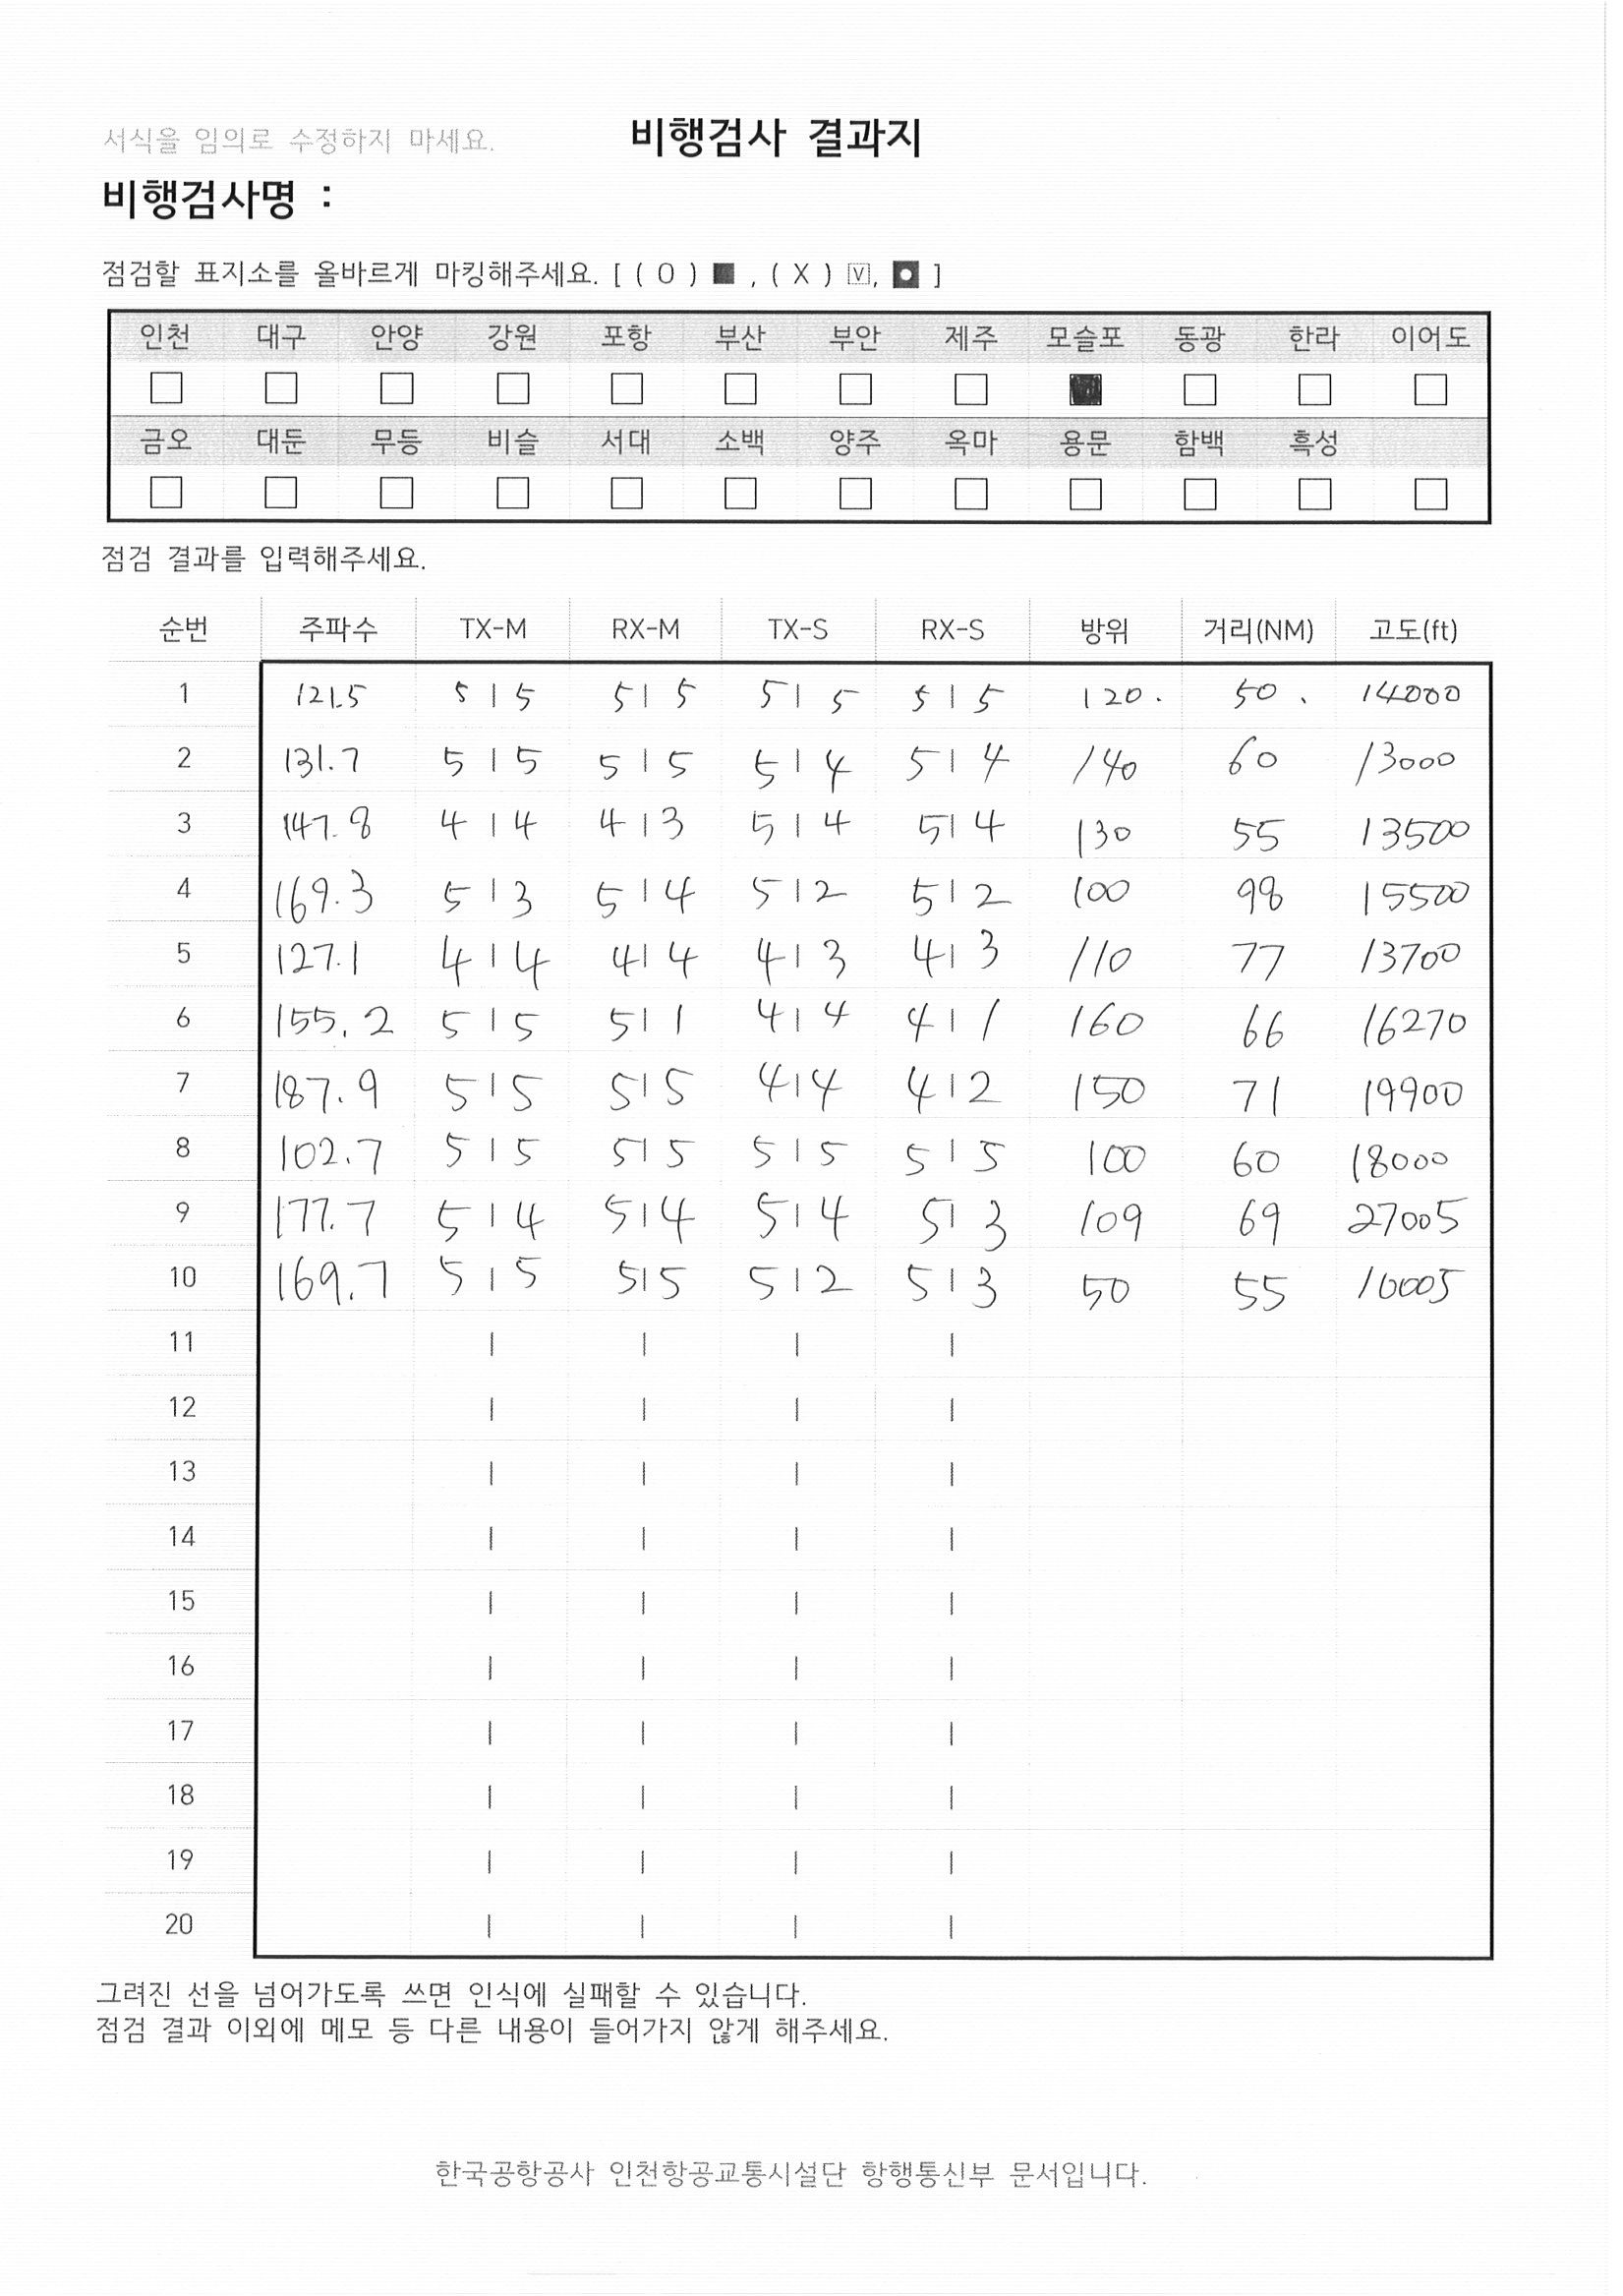 서식을 임의로 수정하지 마세요. 비행검사 결과지
비행검사명 :
점검할 표지소를 올바르게 마킹해주세요. [ ( O ) ■ , ( X ) ☑, ◘ ]
인천 대구 안양 강원 포항 부산 부안 제주 모슬포 동광 한라 이어도
□ □ □ □ □ □ □ □ ■ □ □ □
금오 대둔 무등 비슬 서대 소백 양주 옥마 용문 함백 흑성
□ □ □ □ □ □ □ □ □ □ □ □
점검 결과를 입력해주세요.
순번 주파수 TX-M RX-M TX-S RX-S 방위 거리(NM) 고도(ft)
1 121.5 5 | 5 5 | 5 5 | 5 5 | 5 120. 50. 14000
2 131.7 5 | 5 5 | 5 5 | 4 5 | 4 140 60 13000
3 147.8 4 | 4 4 | 3 5 | 4 5 | 4 130 55 13500
4 169.3 5 | 3 5 | 4 5 | 2 5 | 2 100 98 15500
5 127.1 4 | 4 4 | 4 4 | 3 4 | 3 110 77 13700
6 155.2 5 | 5 5 | 1 4 | 4 4 | 1 160 66 16270
7 187.9 5 | 5 5 | 5 4 | 4 4 | 2 150 71 19900
8 102.7 5 | 5 5 | 5 5 | 5 5 | 5 100 60 18000
9 177.7 5 | 4 5 | 4 5 | 4 5 | 3 109 69 27005
10 169.7 5 | 5 5 | 5 5 | 2 5 | 3 50 55 10005
11 | | | |
12 | | | |
13 | | | |
14 | | | |
15 | | | |
16 | | | |
17 | | | |
18 | | | |
19 | | | |
20 | | | |
그려진 선을 넘어가도록 쓰면 인식에 실패할 수 있습니다.
점검 결과 이외에 메모 등 다른 내용이 들어가지 않게 해주세요.
한국공항공사 인천항공교통시설단 항행통신부 문서입니다.